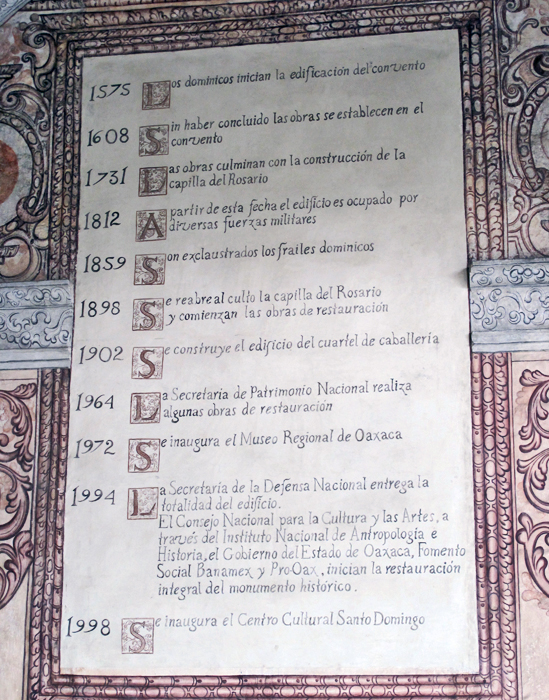 1575 Los dominicos inician la edificación del convento
1608 Sin haber concluido las obras se establecen en el
convento
1731 Las obras culminan con la construcción de la
capilla del Rosario
1812 A partir de esta fecha el edificio es ocupado por
diversas fuerzas militares
1859 Son exclaustrados los frailes dominicos
1898 Se reabre al culto la capilla del Rosario
y comienzan las obras de restauración
1902 Se construye el edificio del cuartel de caballería
1964 La Secretaria de Patrimonio Nacional realiza
algunas obras de restauración
1972 Se inaugura el Museo Regional de Oaxaca
1994 La Secretaria de la Defensa Nacional entrega la
totalidad del edificio.
El Consejo Nacional para la Cultura y las Artes, a
través del Instituto Nacional de Antropología e
Historia, el Gobierno del Estado de Oaxaca, Fomento
Social Banamex y Pro-Oax, inician la restauración
integral del monumento histórico.
1998 Se inaugura el Centro Cultural Santo Domingo